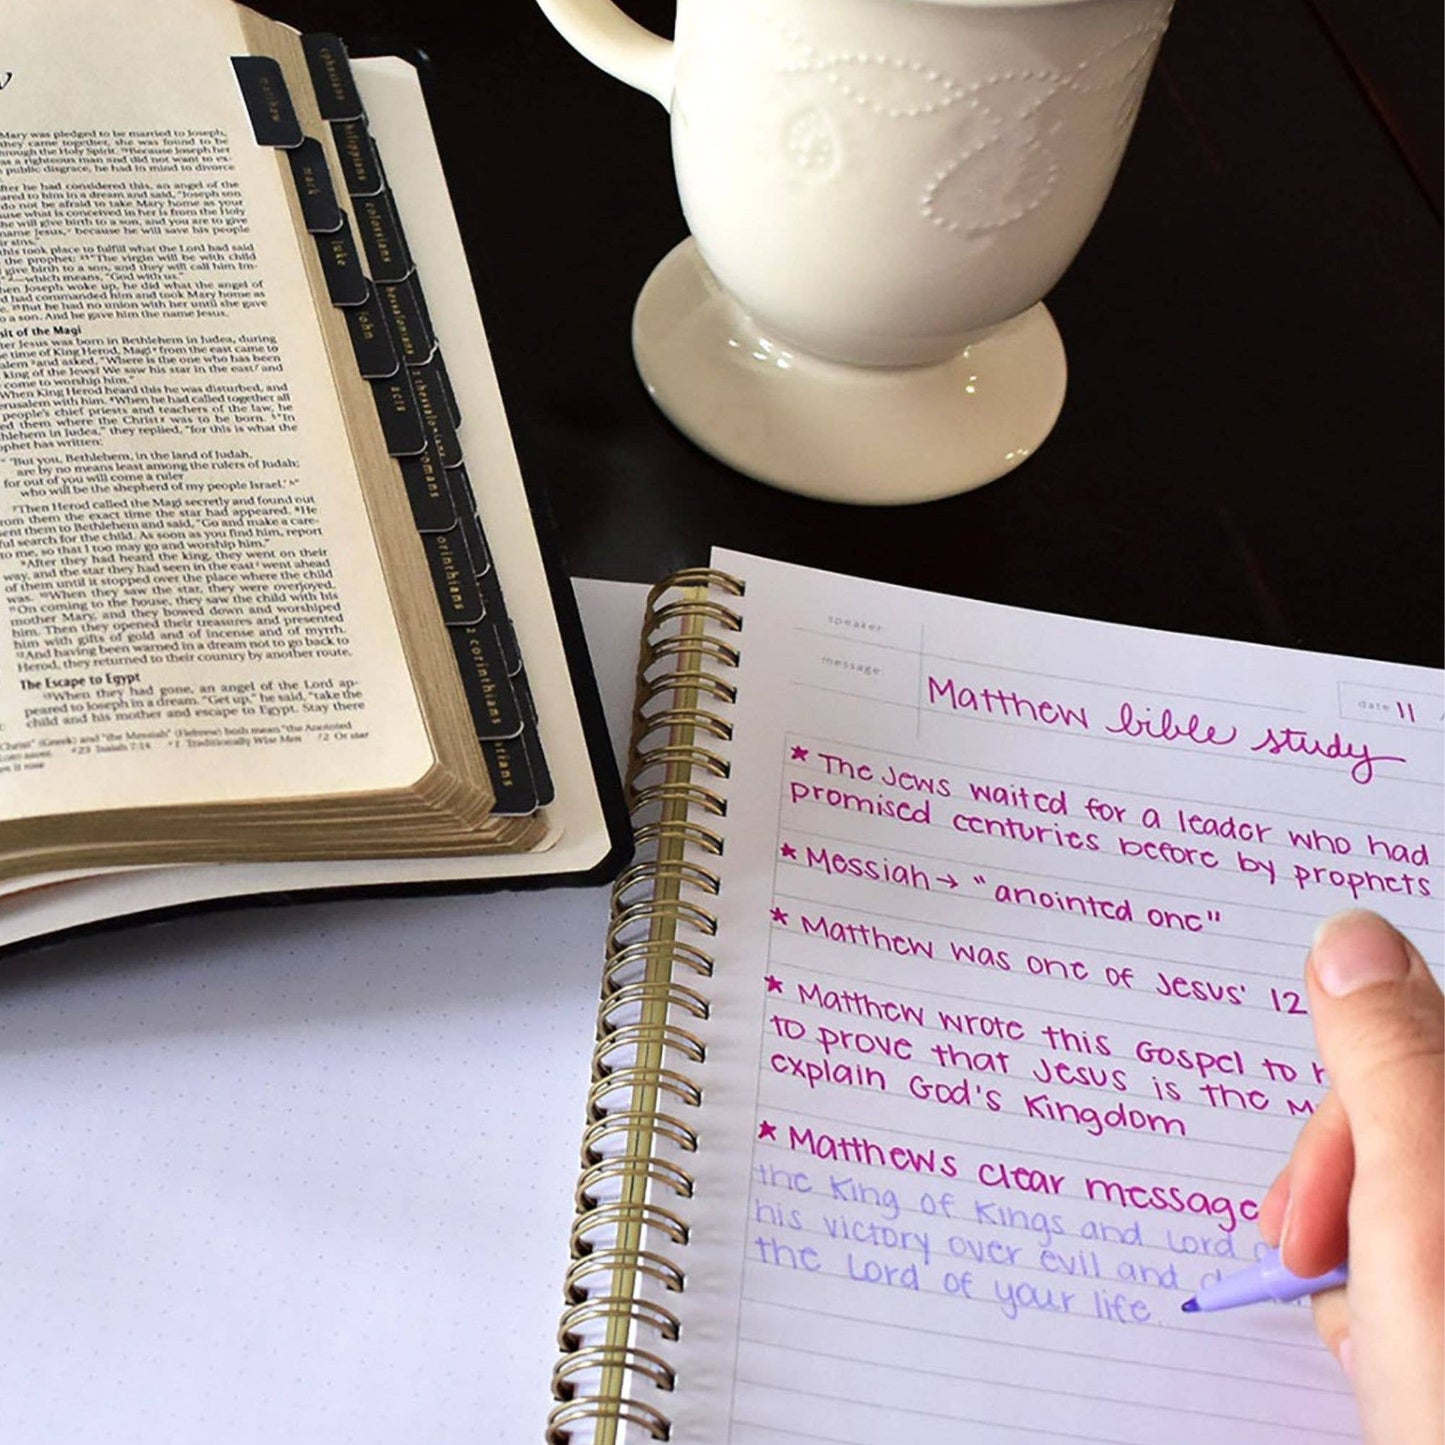 Mary was pledged to be married to Joseph,
they came together, she was found to be
through the Holy Spirit. ¹⁹Because Joseph her
as a righteous man and did not want to ex-
public disgrace, he had in mind to divorce
after he had considered this, an angel of the
to him in a dream and said, "Joseph son
do not be afraid to take Mary home as your
what is conceived in her is from the Holy
will give birth to a son, and you are to give
name Jesus, because he will save his people
sins."
this took place to fulfill what the Lord had said
the prophet: ²³"The virgin will be with child
give birth to a son, and they will call him Im-
—which means, "God with us."
Joseph woke up, he did what the angel of
had commanded him and took Mary home as
²⁵But he had no union with her until she gave
to a son. And he gave him the name Jesus.
of the Magi
Jesus was born in Bethlehem in Judea, during
time of King Herod, Magi from the east came to
²and asked, "Where is the one who has been
king of the Jews? We saw his star in the east and
come to worship him."
When King Herod heard this he was disturbed, and
with him. ⁴When he had called together all
people's chief priests and teachers of the law, he
them where the Christ was to be born. ⁵"In
in Judea," they replied, "for this is what the
has written:
"'But you, Bethlehem, in the land of Judah,
are by no means least among the rulers of Judah;
for out of you will come a ruler
who will be the shepherd of my people Israel.'"
⁷Then Herod called the Magi secretly and found out
from them the exact time the star had appeared. ⁸He
sent them to Bethlehem and said, "Go and make a care-
ful search for the child. As soon as you find him, report
to me, so that I too may go and worship him."
⁹After they had heard the king, they went on their
way, and the star they had seen in the east went ahead
of them until it stopped over the place where the child
was. ¹⁰When they saw the star, they were overjoyed.
¹¹On coming to the house, they saw the child with his
mother Mary, and they bowed down and worshiped
him. Then they opened their treasures and presented
him with gifts of gold and of incense and of myrrh.
¹²And having been warned in a dream not to go back to
Herod, they returned to their country by another route.
The Escape to Egypt
¹³When they had gone, an angel of the Lord ap-
peared to Joseph in a dream. "Get up," he said, "take the
child and his mother and escape to Egypt. Stay there
(Greek) and "the Messiah" (Hebrew) both mean "the Anointed
23 Isaiah 7:14 1 Traditionally Wise Men 2 Or star
matthew
mark
luke
john
acts
romans
corinthians
2 corinthians
ephesians
colossians
2 thessalonians
speaker
message
Matthew bible study
date 11
★ The Jews waited for a leader who had
promised centuries before by prophets
★ Messiah → "anointed one"
★ Matthew was one of Jesus' 12
★ Matthew wrote this Gospel to
to prove that Jesus is the M
explain God's Kingdom
★ Matthews clear message
the King of Kings and Lord
his victory over evil and
the Lord of your life.